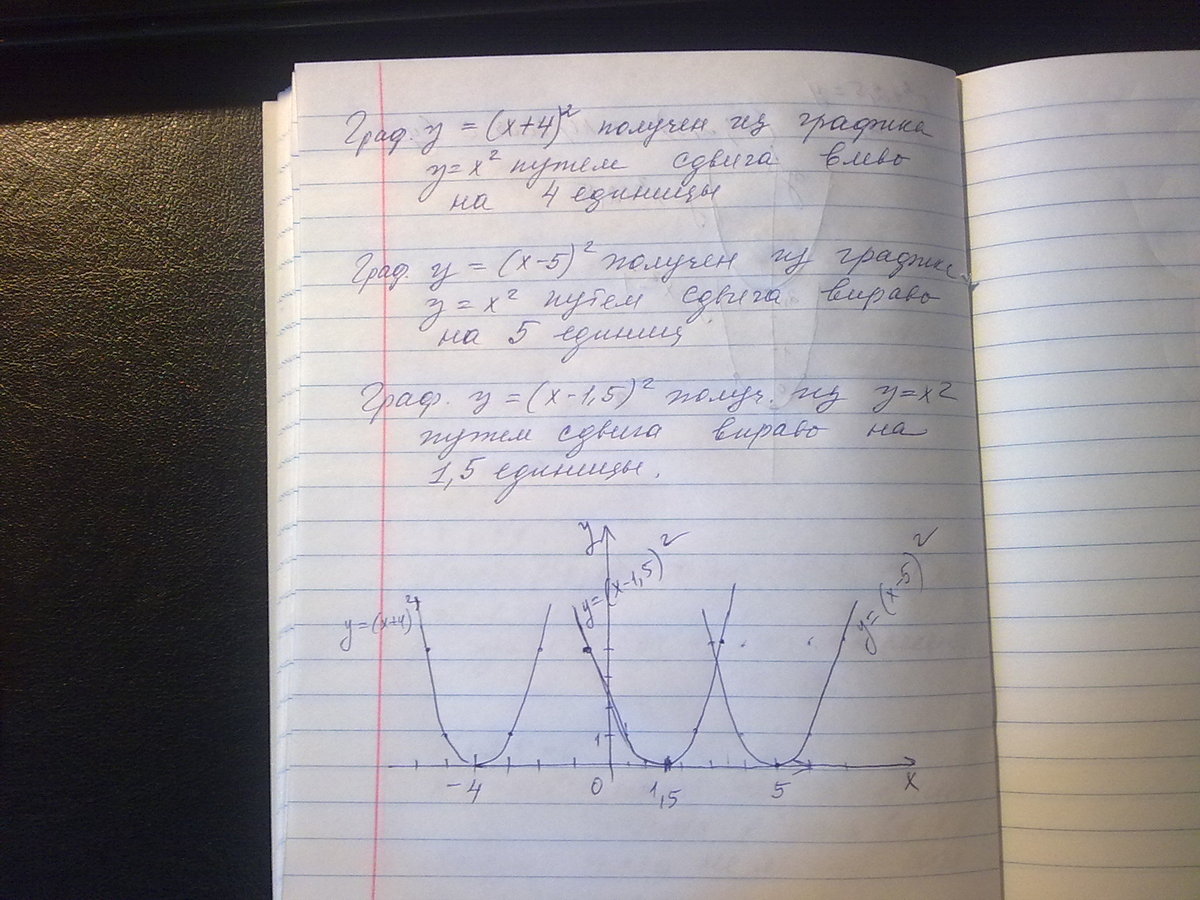 Граф. y = (x+4)² получен из графика
y = x² путем сдвига влево
на 4 единицы
Граф. y = (x-5)² получен из графика
y = x² путем сдвига вправо
на 5 единиц
Граф. y = (x-1,5)² получ. из y = x²
путем сдвига вправо на
1,5 единицы.
y
y = (x+4)²
y = (x-1,5)²
y = (x-5)²
1
-4 0 1,5 5 x